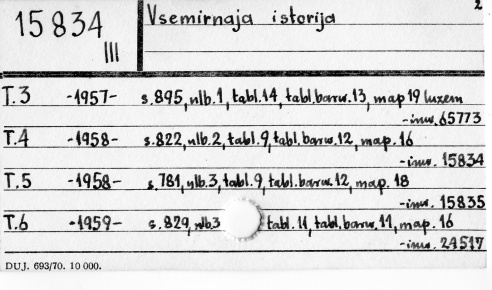 2
15834
III
Vsemirnaja istorija
T.3 -1957- s.895, nlb.1, tabl.14, tabl.barw.13, map 19 luzem
-inw. 65773
T.4 -1958- s.822, nlb.2, tabl.9, tabl.barw.12, map. 16
-inw. 15834
T.5 -1958- s.781, nlb.3, tabl.9, tabl.barw.12, map. 18
-inw. 15835
T.6 -1959- s.829, nlb3 tabl.11, tabl.barw.11, map. 16
-inw. 24517
DUJ. 693/70. 10 000.